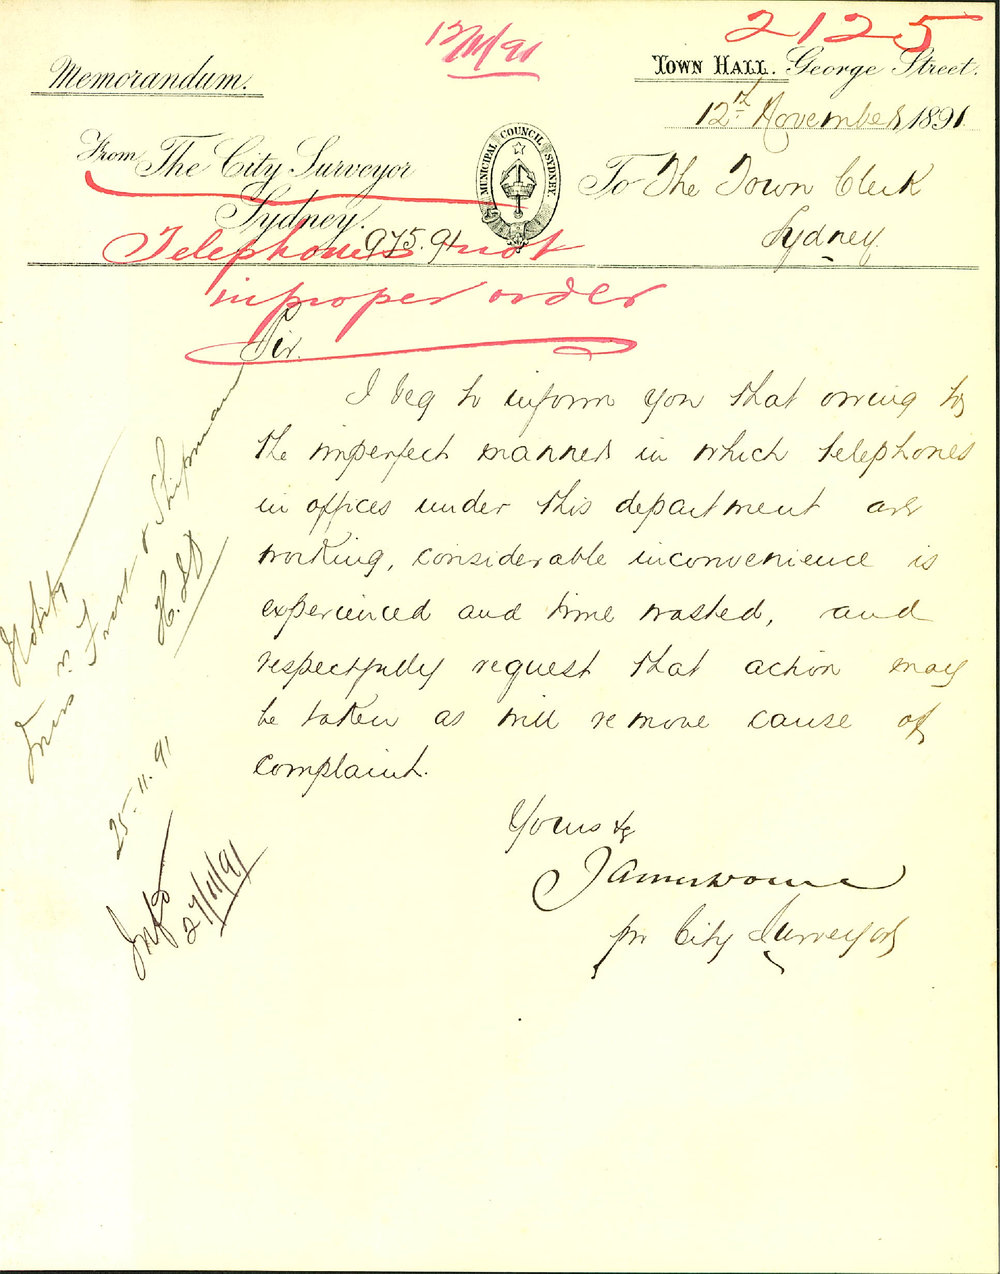 2125
12/11/91
Memorandum.
Town Hall. George Street.
12th November 1891
From The City Surveyor
Sydney.
MUNICIPAL COUNCIL SYDNEY.
To The Town Clerk
Sydney
975.91
Telephones not
in proper order
Sir.
I beg to inform you that owing to
the imperfect manner in which telephones
in offices under this department are
working, considerable inconvenience is
experienced and time wasted, and
respectfully request that action may
be taken as will remove cause of
complaint.
Yours &c
pro City Surveyor
Notify
Frost & Shipman
25.11.91
27/11/91